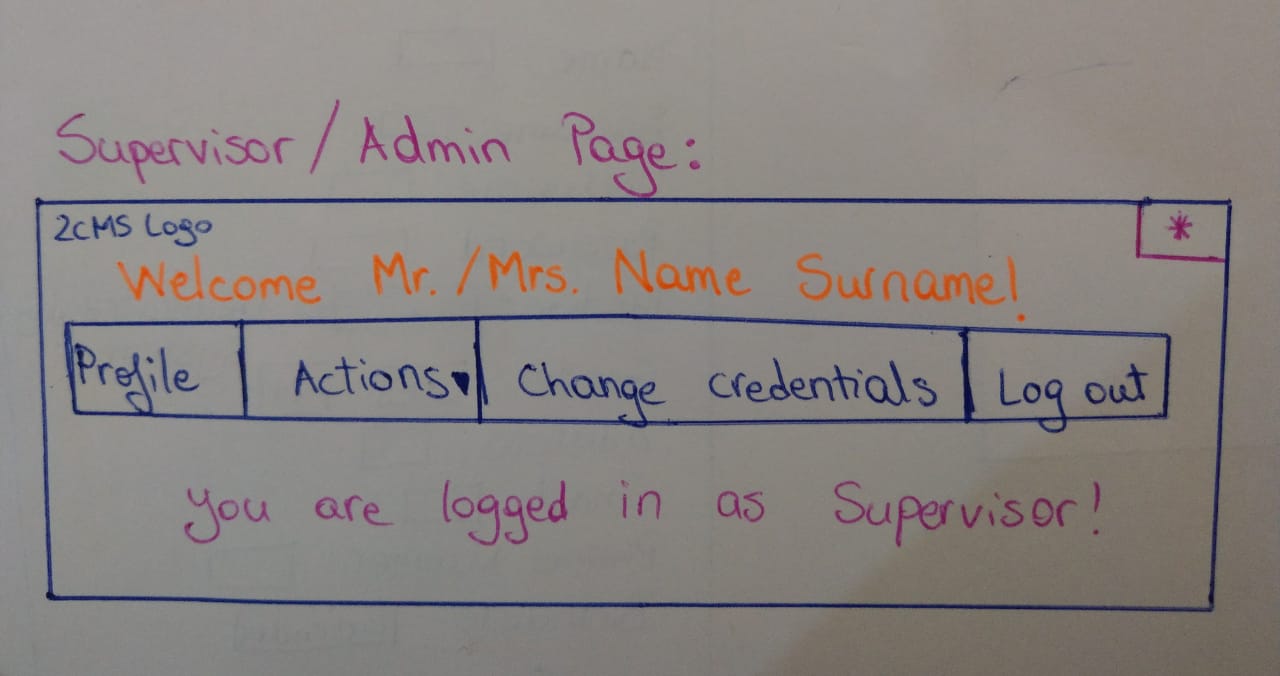 Supervisor / Admin Page:
2CMS Logo
*
Welcome Mr. /Mrs. Name Surname!
Profile
Actions▾
Change credentials
Log out
you are logged in as Supervisor!